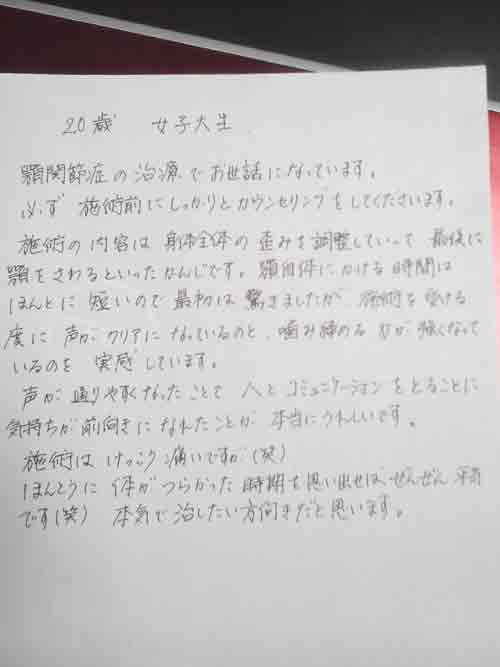 20歳 女子大生
顎関節症の治療でお世話になっています。
必ず 施術前にしっかりとカウンセリングをしてくださいます。
施術の内容は 身体全体の歪みを調整していって 最後に
顎をさわるといったかんじです。顎自体にかける時間は
ほんとに 短いので 最初は 驚きましたが、施術を受ける
度に 声が クリアになっているのと、噛み締める 力が 強くなって
いるのを 実感しています。
声が 通りやすくなったことで 人と コミュニケーションを とることに
気持ちが前向きに なれたことが 本当に うれしいです。
施術は けっこう 痛いですが (笑)
ほんとうに 体が つらかった 時期を 思い出せば、ぜんぜん 平気
です(笑) 本気で 治したい 方向きだと 思います。